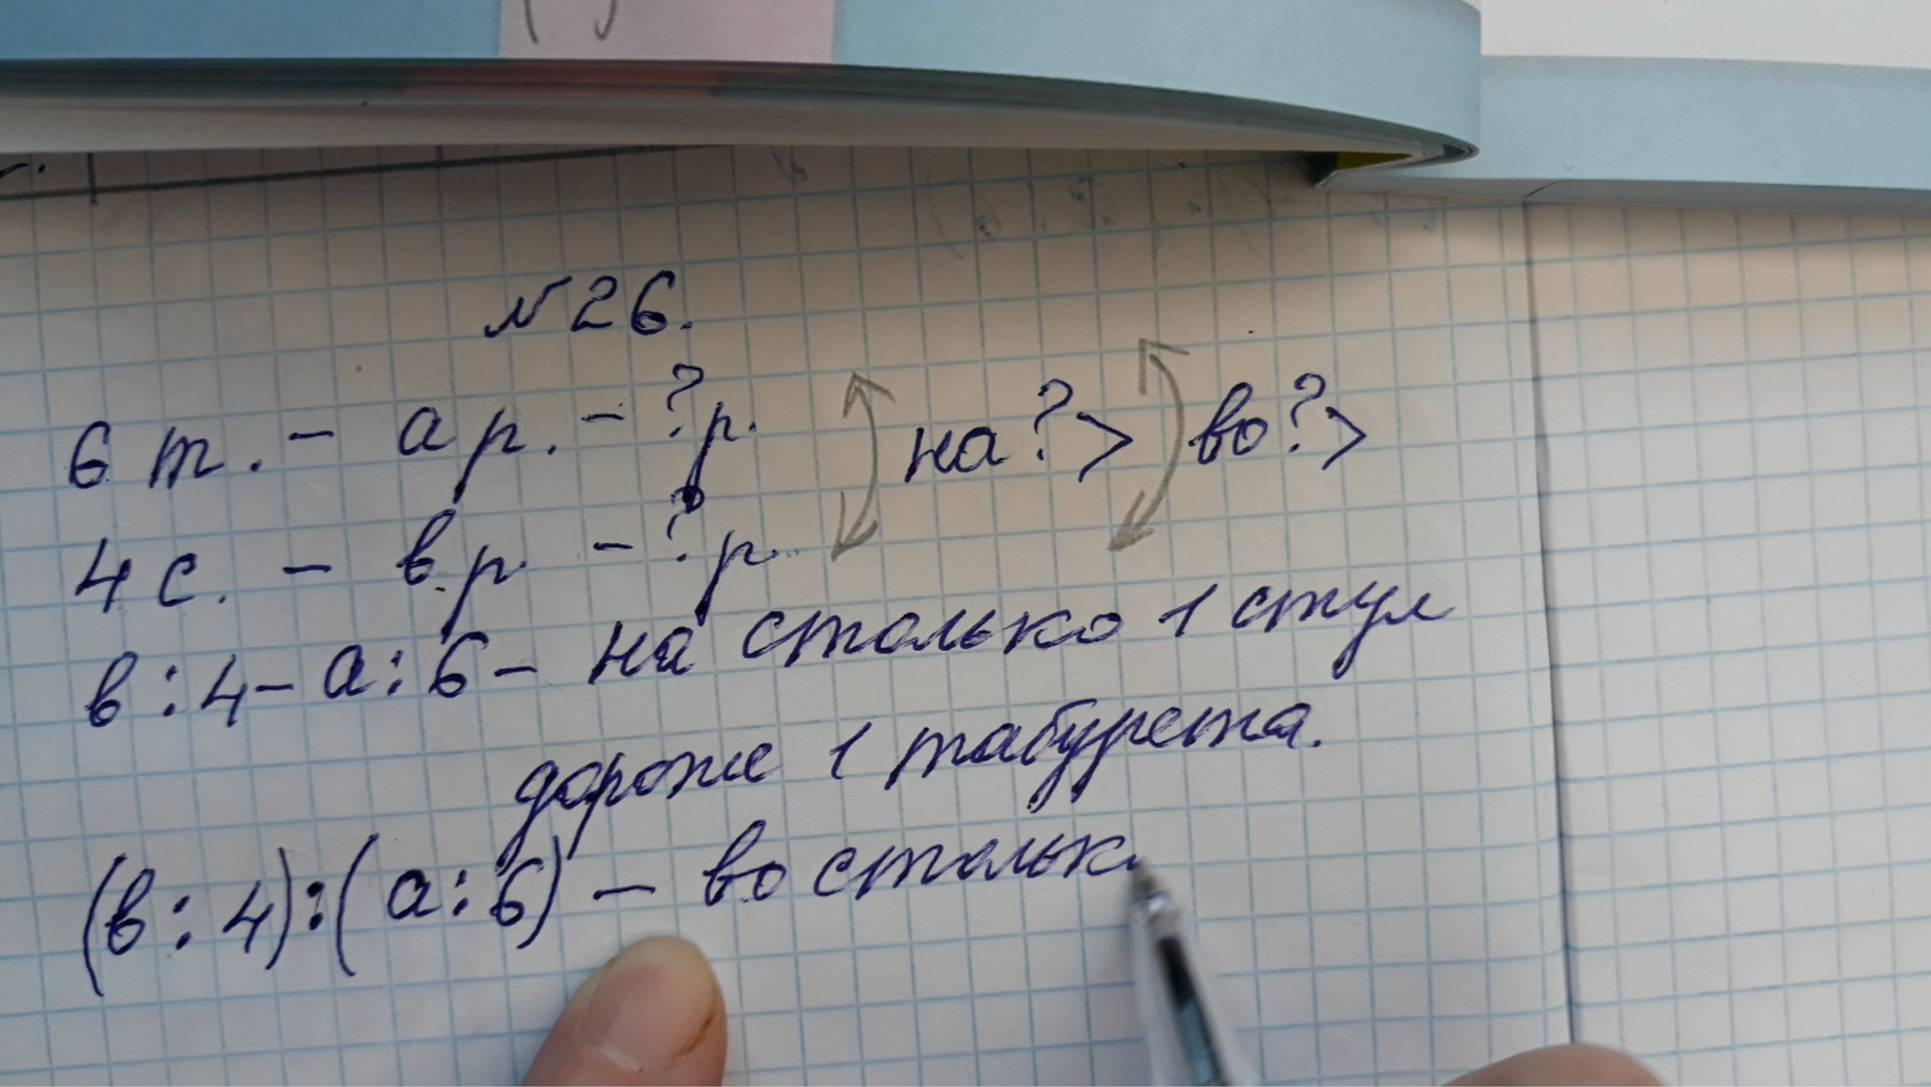 №26.
6 т. - а р. - ?р. на?> во?>
4 с. - в р. - ?р.
в:4-а:6- на столько 1 стул
дороже 1 табурета.
(в:4):(а:6) - во стольк